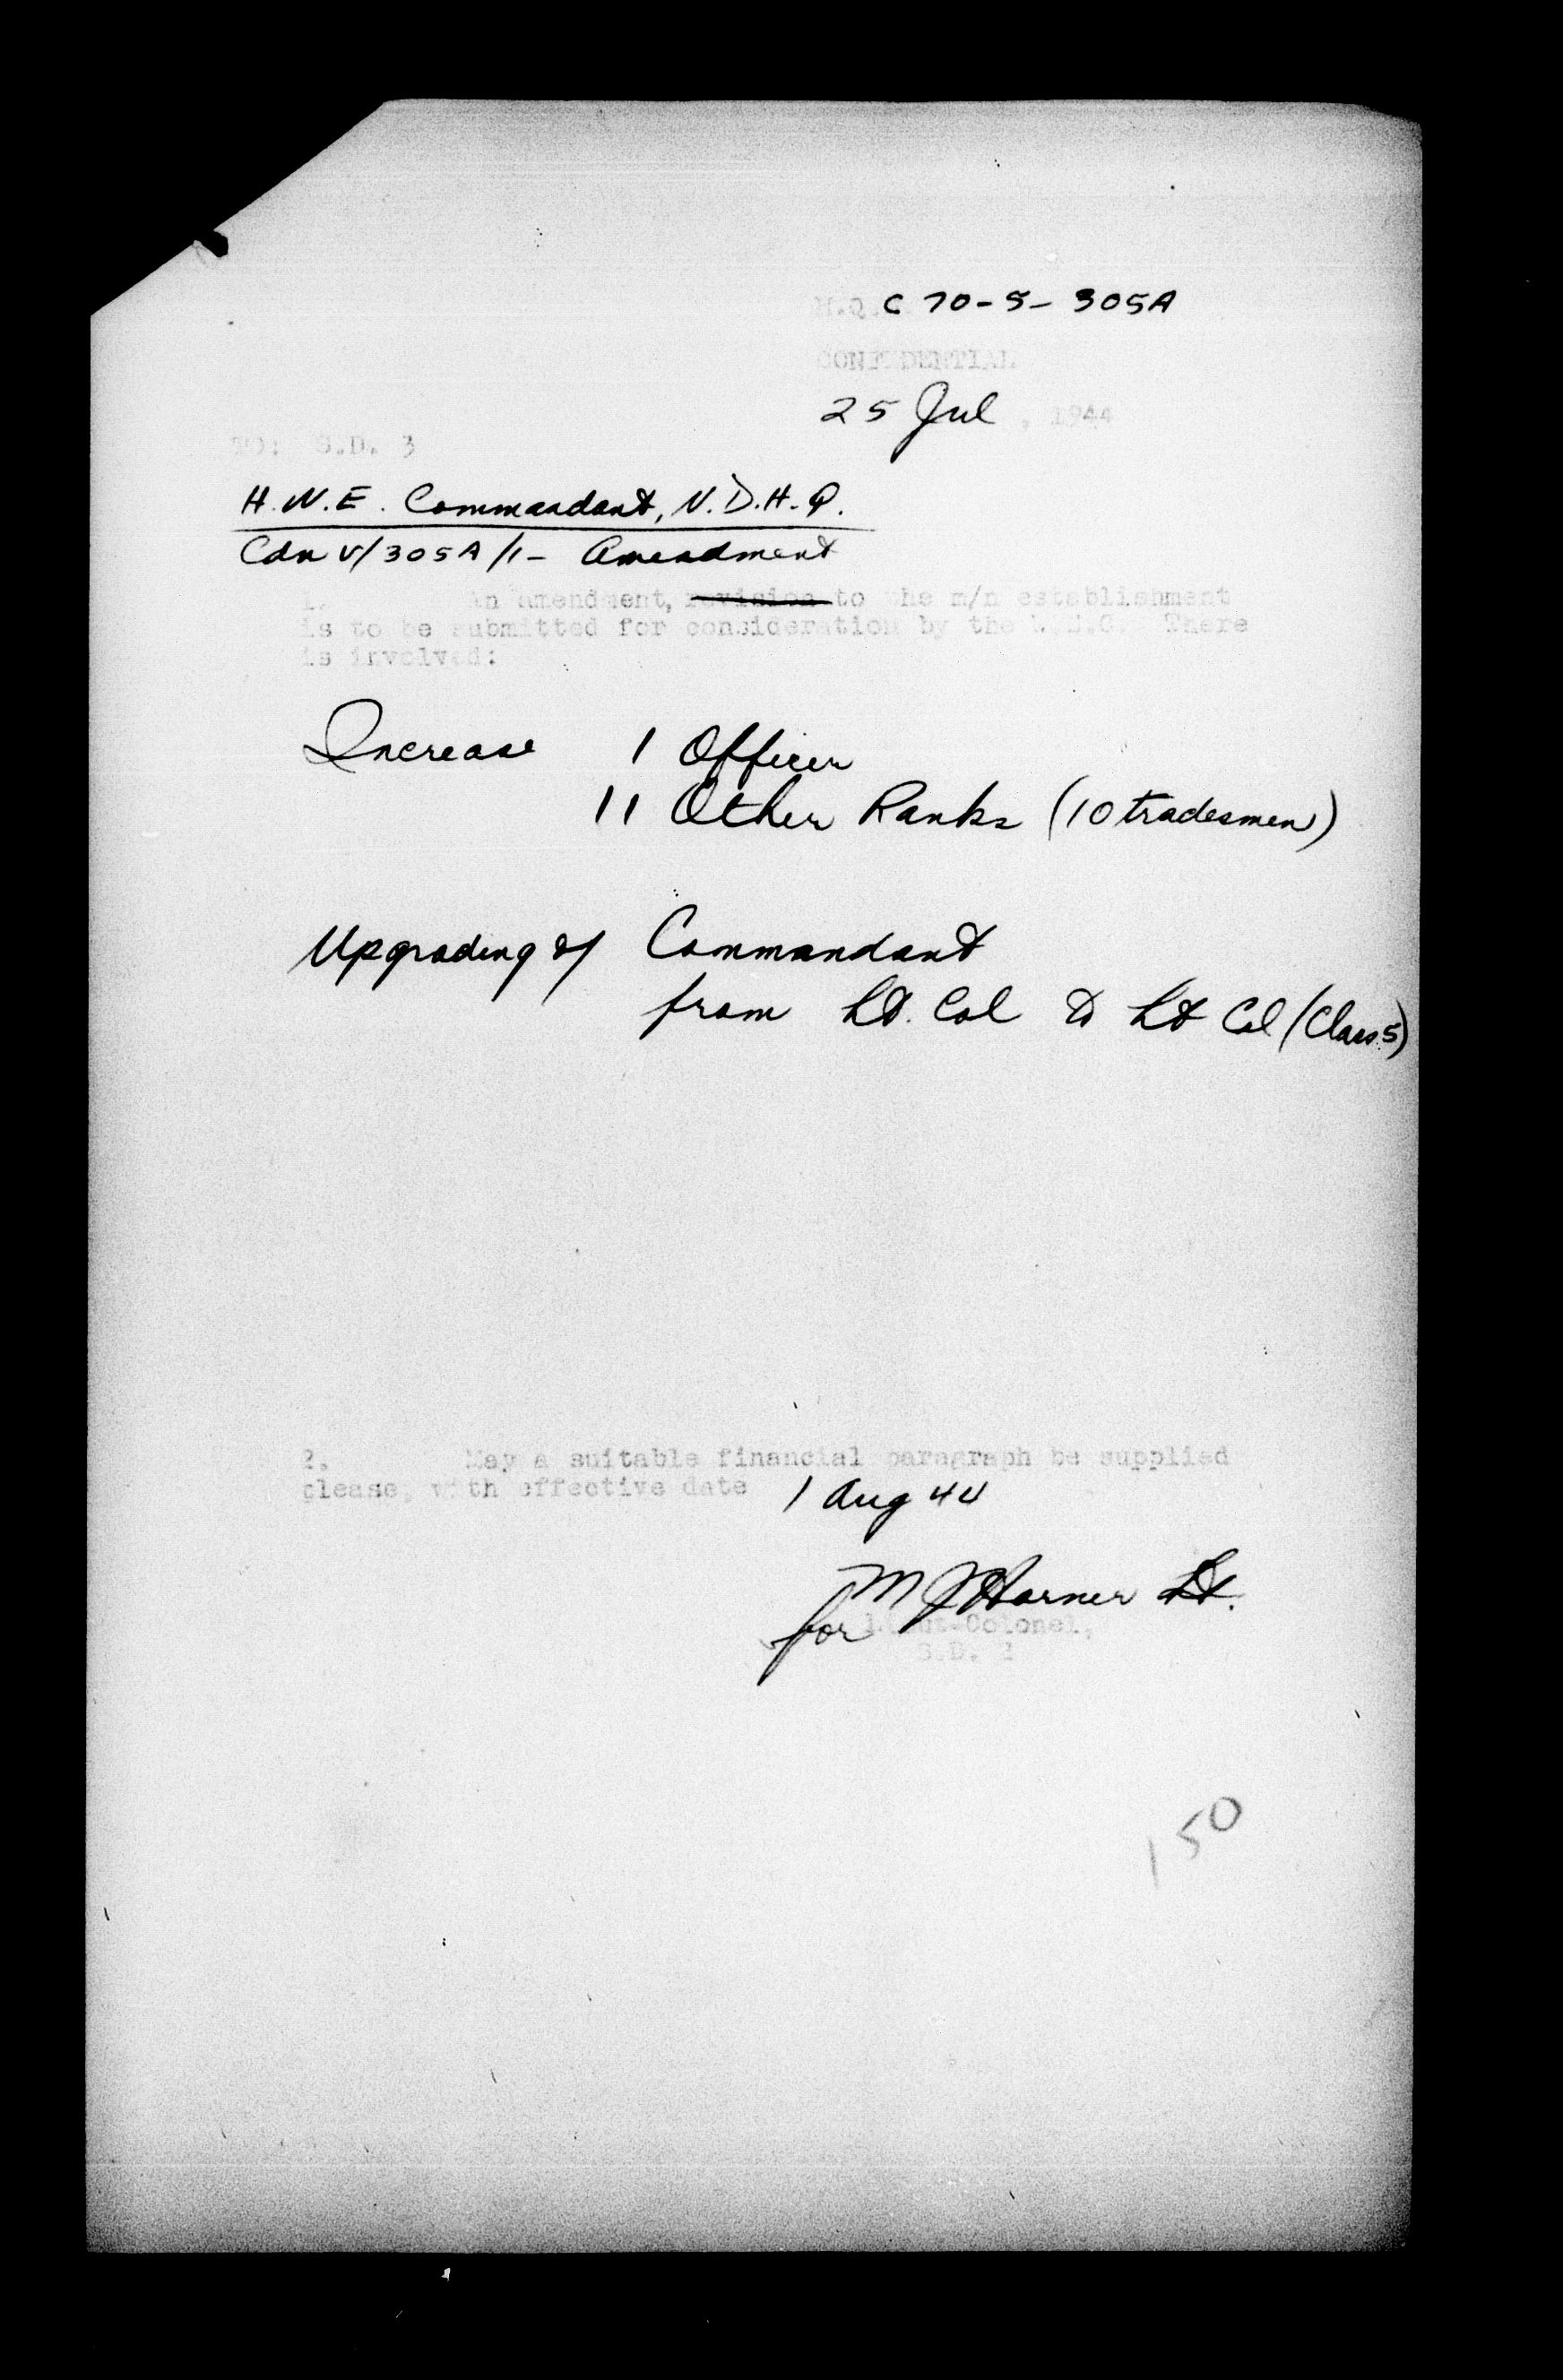 H.Q. C 70-5-305A
CONFIDENTIAL
25 Jul, 1944
TO: S.D. 3
H.W.E. Commandant, N.D.H.Q.
Cdn V/305A/1- Amendment
1. An amendment, revision to the m/n establishment
is to be submitted for consideration by the There
is involved:
Increase 1 Officer
11 Other Ranks (10 tradesmen)
Upgrading of Commandant
from Lt. Col to Lt Col (Class 5)
2. May a suitable financial paragraph be supplied
please, with effective date 1 Aug 44
M J Horner Lt.
for Lieut-Colonel,
S.D.
150